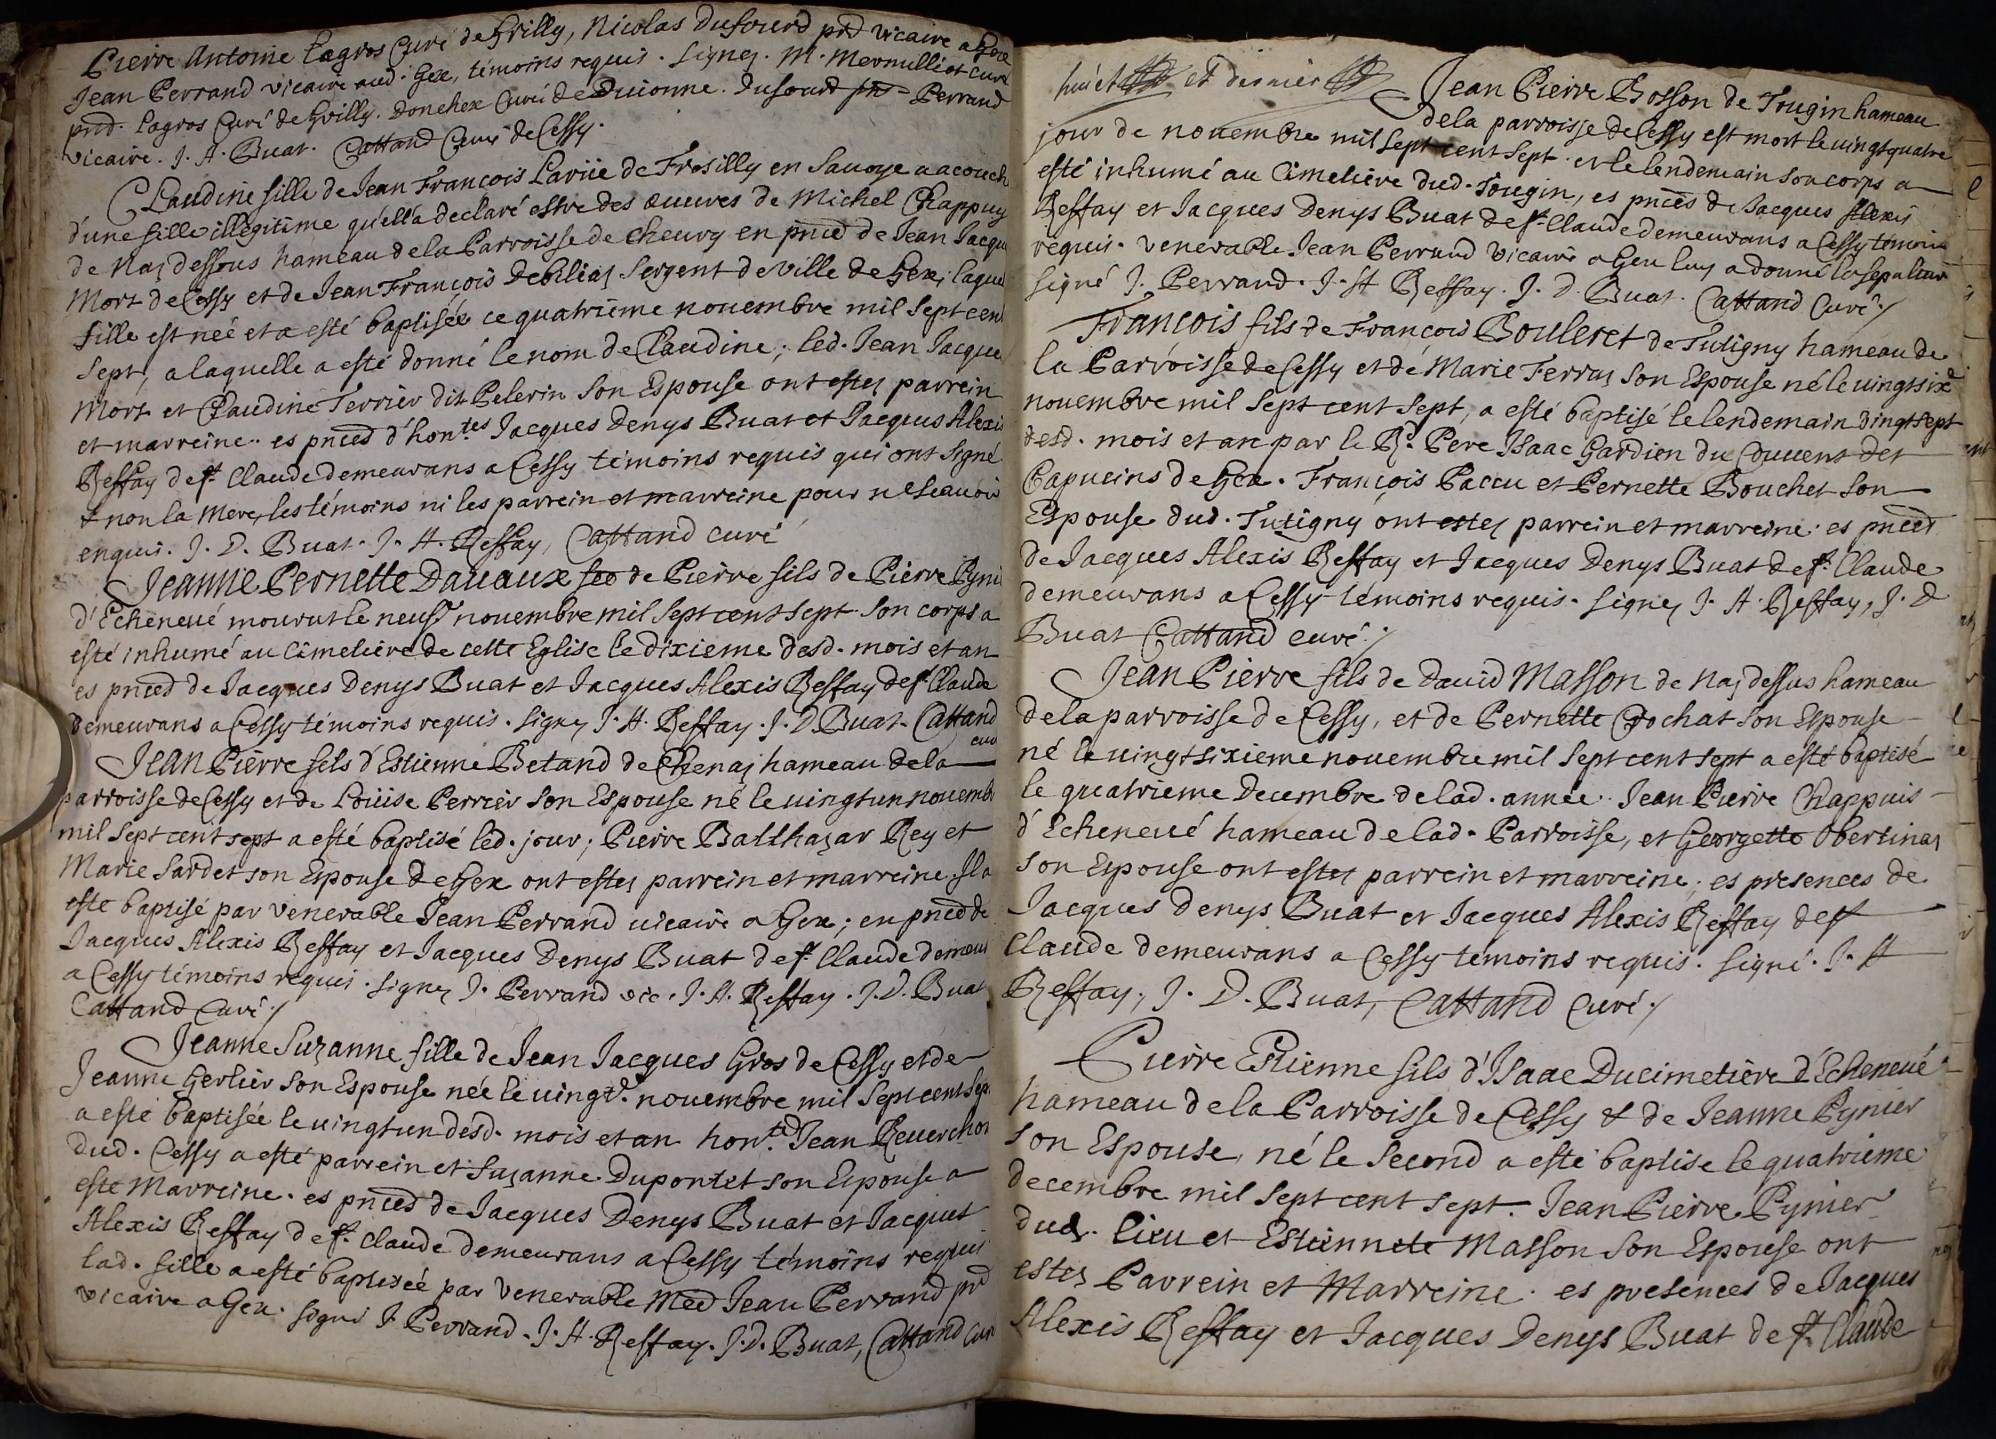 Pierre Antoine Lagros Curé de Grilly, Nicolas Dufourd prd vicaire a Gex
Jean Perrand vicaire aud. Gex, témoins requis. Signez. M. Mermilliot curé
prd. Lagros Curé de Grilly. Donchex Curé de Diuonne. Dufourd prd Perrand
vicaire. J. A. Buat. Cattand Curé de Cessy.
Claudine fille de Jean François Lariie de Frosilly en Sauoye a acouch
d'une fille illegitime qu'ell'a declaré estre des œuures de Michel Chappuy
de Naz dessous hameau de la Parroisse de Cheury en pnced de Jean Jacque
Mort de Cessy et de Jean François Debiliaz Sergent de Ville de Gex; laque
fille est née et a esté baptisée ce quatrieme nouembre mil sept cent
sept, a laquelle a esté donné le nom de Claudine; led. Jean Jacque
Mort et Claudine Terrier dit Pelerin son Espouse ont estez parrein
et marreine. es pnced d'hon.tes Jacques Denys Buat et Jacques Alexis
Reffay de St. Claude demeurans a Cessy témoins requis qui ont signé
& non la mere, les témoins ni les parrein et marreine pour ne sçauoir
enquis. J. D. Buat. J. A. Reffay, Cattand curé
Jeanne Pernette Dauaux feé de Pierre fils de Pierre Pyni
d'Echeneué mourut le neuf.e nouembre mil sept cent sept son corps a
esté inhumé au Cimetiére de cette Eglise le dixieme desd. mois et an
es pnced de Jacques Denys Buat et Jacques Alexis Reffay de St. Claude
demeurans a Cessy témoins requis. Signez J. A. Reffay. J. D. Buat. Cattand
curé
Jean Pierre fils d'Estienne Betand de Chenaz hameau de la
parroisse de Cessy et de Loüise Perrier son Espouse né le uingt un nouemb
mil sept cent sept a esté baptisé led. jour; Pierre Balthazar Rey et
Marie Sardet son Espouse de Gex ont estez parrein et marreine. Il a
esté baptisé par venerable Jean Perrand uicaire a Gex; en pnced de
Jacques Alexis Reffay et Jacques Denys Buat de St. Claude demeur
a Cessy témoins requis. Signez J. Perrand vic. J. A. Reffay. J. D. Buat
Cattand Curé./
Jeanne Suzanne fille de Jean Jacques Gros de Cessy et de
Jeanne Gerlier son Espouse née le uingt.e nouembre mil sept cent sept
a esté baptisée le uingt un desd. mois et an hon.te Jean Reuerchon
dud. Cessy a esté parrein et Suzanne Dupontet son Espouse a
esté Marreine. es pnced de Jacques Denys Buat et Jacques
Alexis Reffay de St. Claude demeurans a Cessy témoins requis
lad. fille a esté baptisée par Venerable Jean Perrand prd
vicaire a Gex. Signé J. Perrand. J. A. Reffay. J. D. Buat, Cattand curé
et dernier
Jean Pierre Bosson de Tougin hameau
de la parroisse de Cessy est mort le uingt quatre
jour de nouembre mil sept cent sept et le lendemain son corps a
esté inhumé au Cimetiére dud. Tougin, es pnces de Jacques Alexis
Reffay et Jacques Denys Buat de St. Claude demeurans a Cessy témoins
requis. Venerable Jean Perrand Vicaire a Gex luy a donné la sepulture
signé J. Perrand. J. A Reffay. J. D. Buat. Cattand Curé./
François fils de François Bouleret de Tutigny hameau de
la Parroisse de Cessy et de Marie Ferraz son Espouse né le uingt six.e
nouembre mil sept cent sept, a esté baptisé le lendemain uingt sept
desd. mois et an par le R.d Pere Isaac Gardien du Couuent des
Capucins de Gex. François Paccu et Pernette Bouchet son
Espouse dud. Tutigny ont estez parrein et marreine. es pnced
de Jacques Alexis Reffay et Jacques Denys Buat de St. Claude
demeurans a Cessy témoins requis. Signez J. A. Reffay, J. D
Buat Cattand curé./
Jean Pierre fils de Dauid Masson de Naz dessus hameau
de la parroisse de Cessy, et de Pernette Crochat son Espouse
né le uingt sixieme nouembre mil sept cent sept a esté baptisé
le quatrieme Decembre de lad. année. Jean Pierre Chappuis
d'Echeneué hameau de lad. Parroisse, et Georgette Obertinaz
son Espouse ont estez parrein et marreine; es presences de
Jacques Denys Buat et Jacques Alexis Reffay de St
Claude demeurans a Cessy témoins requis. Signé. J. A
Reffay, J. D. Buat, Cattand Curé./
Pierre Estienne fils d'Isaac Ducimetiére d'Echeneué
hameau de la Parroisse de Cessy & de Jeanne Pynier
son Espouse, né le Second a esté baptisé le quatrieme
decembre mil sept cent sept. Jean Pierre Pynier
dud. lieu et Estiennete Masson son Espouse ont
estez Parrein et Marreine. es presences de Jacques
Alexis Reffay et Jacques Denys Buat de St. Claude